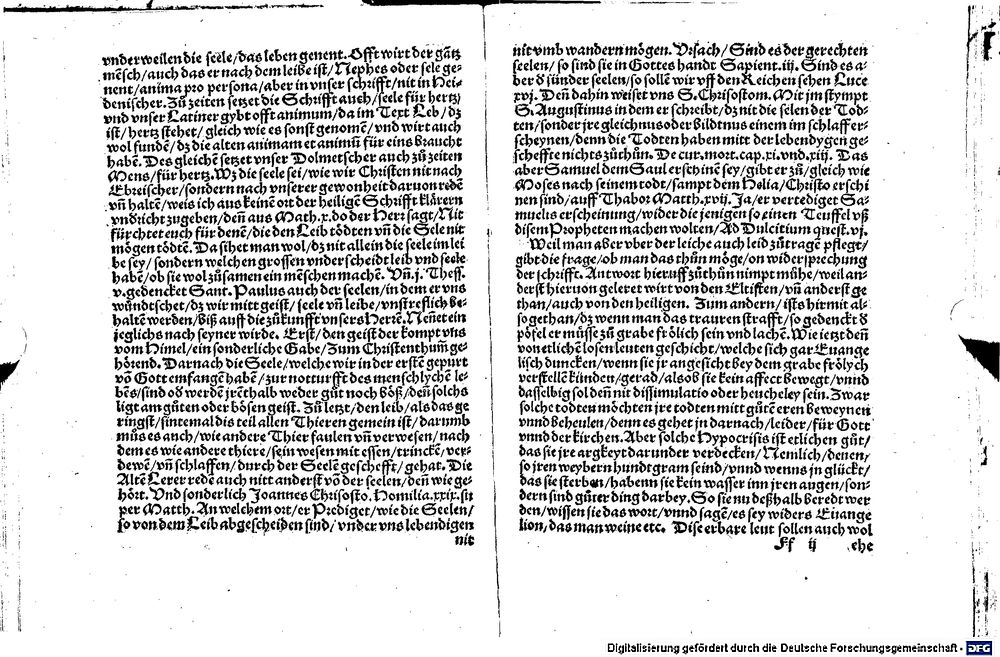 vnderweilen die seele/das leben genent. Offt wirt der gātz
mēsch/auch das er nach dem leibe ist/Nephes oder sele ge-
nent/anima pro persona/aber in vnser schrifft/nit in Hei-
denischer. Zů zeiten setzet die Schrifft auch/seele für hertz
vnd vnser Latiner gybt offt animum/da im Text Leb/dz
ist/hertz stehet/gleich wie es sonst genomē/vnd wirt auch
wol fundē/dz die alten animam et animū für eins braucht
habē. Des gleichē setzet vnser Dolmetscher auch zů zeiten
Mens/für hertz. Wz die seele sei/wie wir Christen nit nach
Ebreischer/sondern nach vnserer gewonheit daruon redē
vñ haltē/weis ich aus keinē ort der heiligē Schrifft klårern
vndricht zugeben/deñ aus Math.x.do der Herr sagt/Nit
fürchtet euch für denē/die den Leib tödten vñ die Sele nit
mögen tödtē. Da sihet man wol/dz nit allein die seele im lei
be sey/sondern welchen grossen vnderscheidt leib vnd seele
habē/ob sie wol zůsamen ein mēschen machē. Vñ.j. Thess.
v.gedencket Sant. Paulus auch der seelen/in dem er vns
wündtschet/dz wir mitt geist/seele vñ leibe/vnstreflich be-
haltē werden/biß auff die zůkunfft vnsers Herrē. Neñet ein
jeglichs nach seyner wirde. Erst/den geist der kompt vns
vom Himel/ein sonderliche Gabe/Zum Christenthum̃ ge-
hörend. Darnach die Seele/welche wir in der erstē gepurt
vō Gott emfangē habē/zur notturfft des menschlychē le-
bēs/sind od̄ werdē jrēthalb weder gůt noch böß/deñ solchs
ligt am gůten oder bösen geist. Zů letzt/den leib/als das ge
ringst/sintemal dis teil allen Thieren gemein ist/darumb
můs es auch/wie andere Thier faulen vñ verwesen/nach
dem es wie andere thiere/sein wesen mit essen/trinckē/ver-
dewē/vñ schlaffen/durch der Seelē gescheffт/gehat. Die
Altē Lerer redē auch nitt anderst vō der seelen/deñ wie ge-
hört. Vnd sonderlich Joannes Chrisosto. Homilia.xxix.su
per Matth. An welchem ort/er Prediget/wie die Seelen/
so von dem Leib abgescheiden sind/vnder vns lebendigen
nit
nit vmb wandern mögen. Vrsach/Sind es der gerechten
seelen/so sind sie in Gottes handt Sapient.iij. Sind es a-
ber d̄ sünder seelen/so sollē wir vff den Reichen sehen Luce
xvj. Deñ dahin weiset vns S. Chrisostom. Mit jm stympt
S. Augustinus in dem er schreibt/dz nit die selen der Tod-
ten/sonder jre gleichnus oder bildtnus einem im schlaff er-
scheynen/denn die Todten haben mitt der lebendygen ge-
scheffte nichts zůthůn. De cur.mort.cap.xi.vnd.xiij. Das
aber Samuel dem Saul erschinē sey/gibt er zů/gleich wie
Moses nach seinem todt/sampt dem Helia/Christo erschi
nen sind/auff Thabor Matth.xvij. Ja/er vertediget Sa-
muelis erscheinung/wider die jenigen so einen Teuffel vß
disem Propheten machen wolten/Ad Dulcitium quest.vj.
Weil man aber vber der leiche auch leid zůtragē pflegt/
gibt die frage/ob man das thůn möge/on widersprechung
der schrifft. Antwort hieruff zůthůn nimpt mühe/weil an-
derst hieruon geleret wirt von den Eltisten/vñ anderst ge
than/auch von den heiligen. Zum andern/ists hirmit al-
so gethan/dz wenn man das trauren strafft/so gedenckt d̄
pöfel er müsse zů grabe frölich sein vnd lachē. Wie ietzt deñ
von etlichē losen leuten geschicht/welche sich gar Euange
lisch duncken/wenn sie jr angesicht bey dem grabe frölych
verstellē künden/gerad/als ob sie kein affect bewegt/vnnd
dasselbig sol deñ nit dissimulatio oder heucheley sein. Zwar
solche todten möchten jre todten mitt gůtē eren beweynen
vnnd beheulen/denn es gehet jn darnach/leider/für Gott
vnnd der kirchen. Aber solche Hypocrisis ist etlichen gůt/
das sie jre argkeyt darunder verdecken/Nemlich/denen/
so jren weybern hundt gram seind/vnnd wenns jn glückt/
das sie sterben/habenn sie kein wasser inn jren augen/son-
dern sind gůter ding darbey. So sie nu deßhalb beredt wer
den/wissen sie das wort/vnnd sagē/es sey widers Euange
lion/das man weine etc. Dise erbare leut sollen auch wol
Ff ij ehe
Digitalisierung gefördert durch die Deutsche Forschungsgemeinschaft - DFG